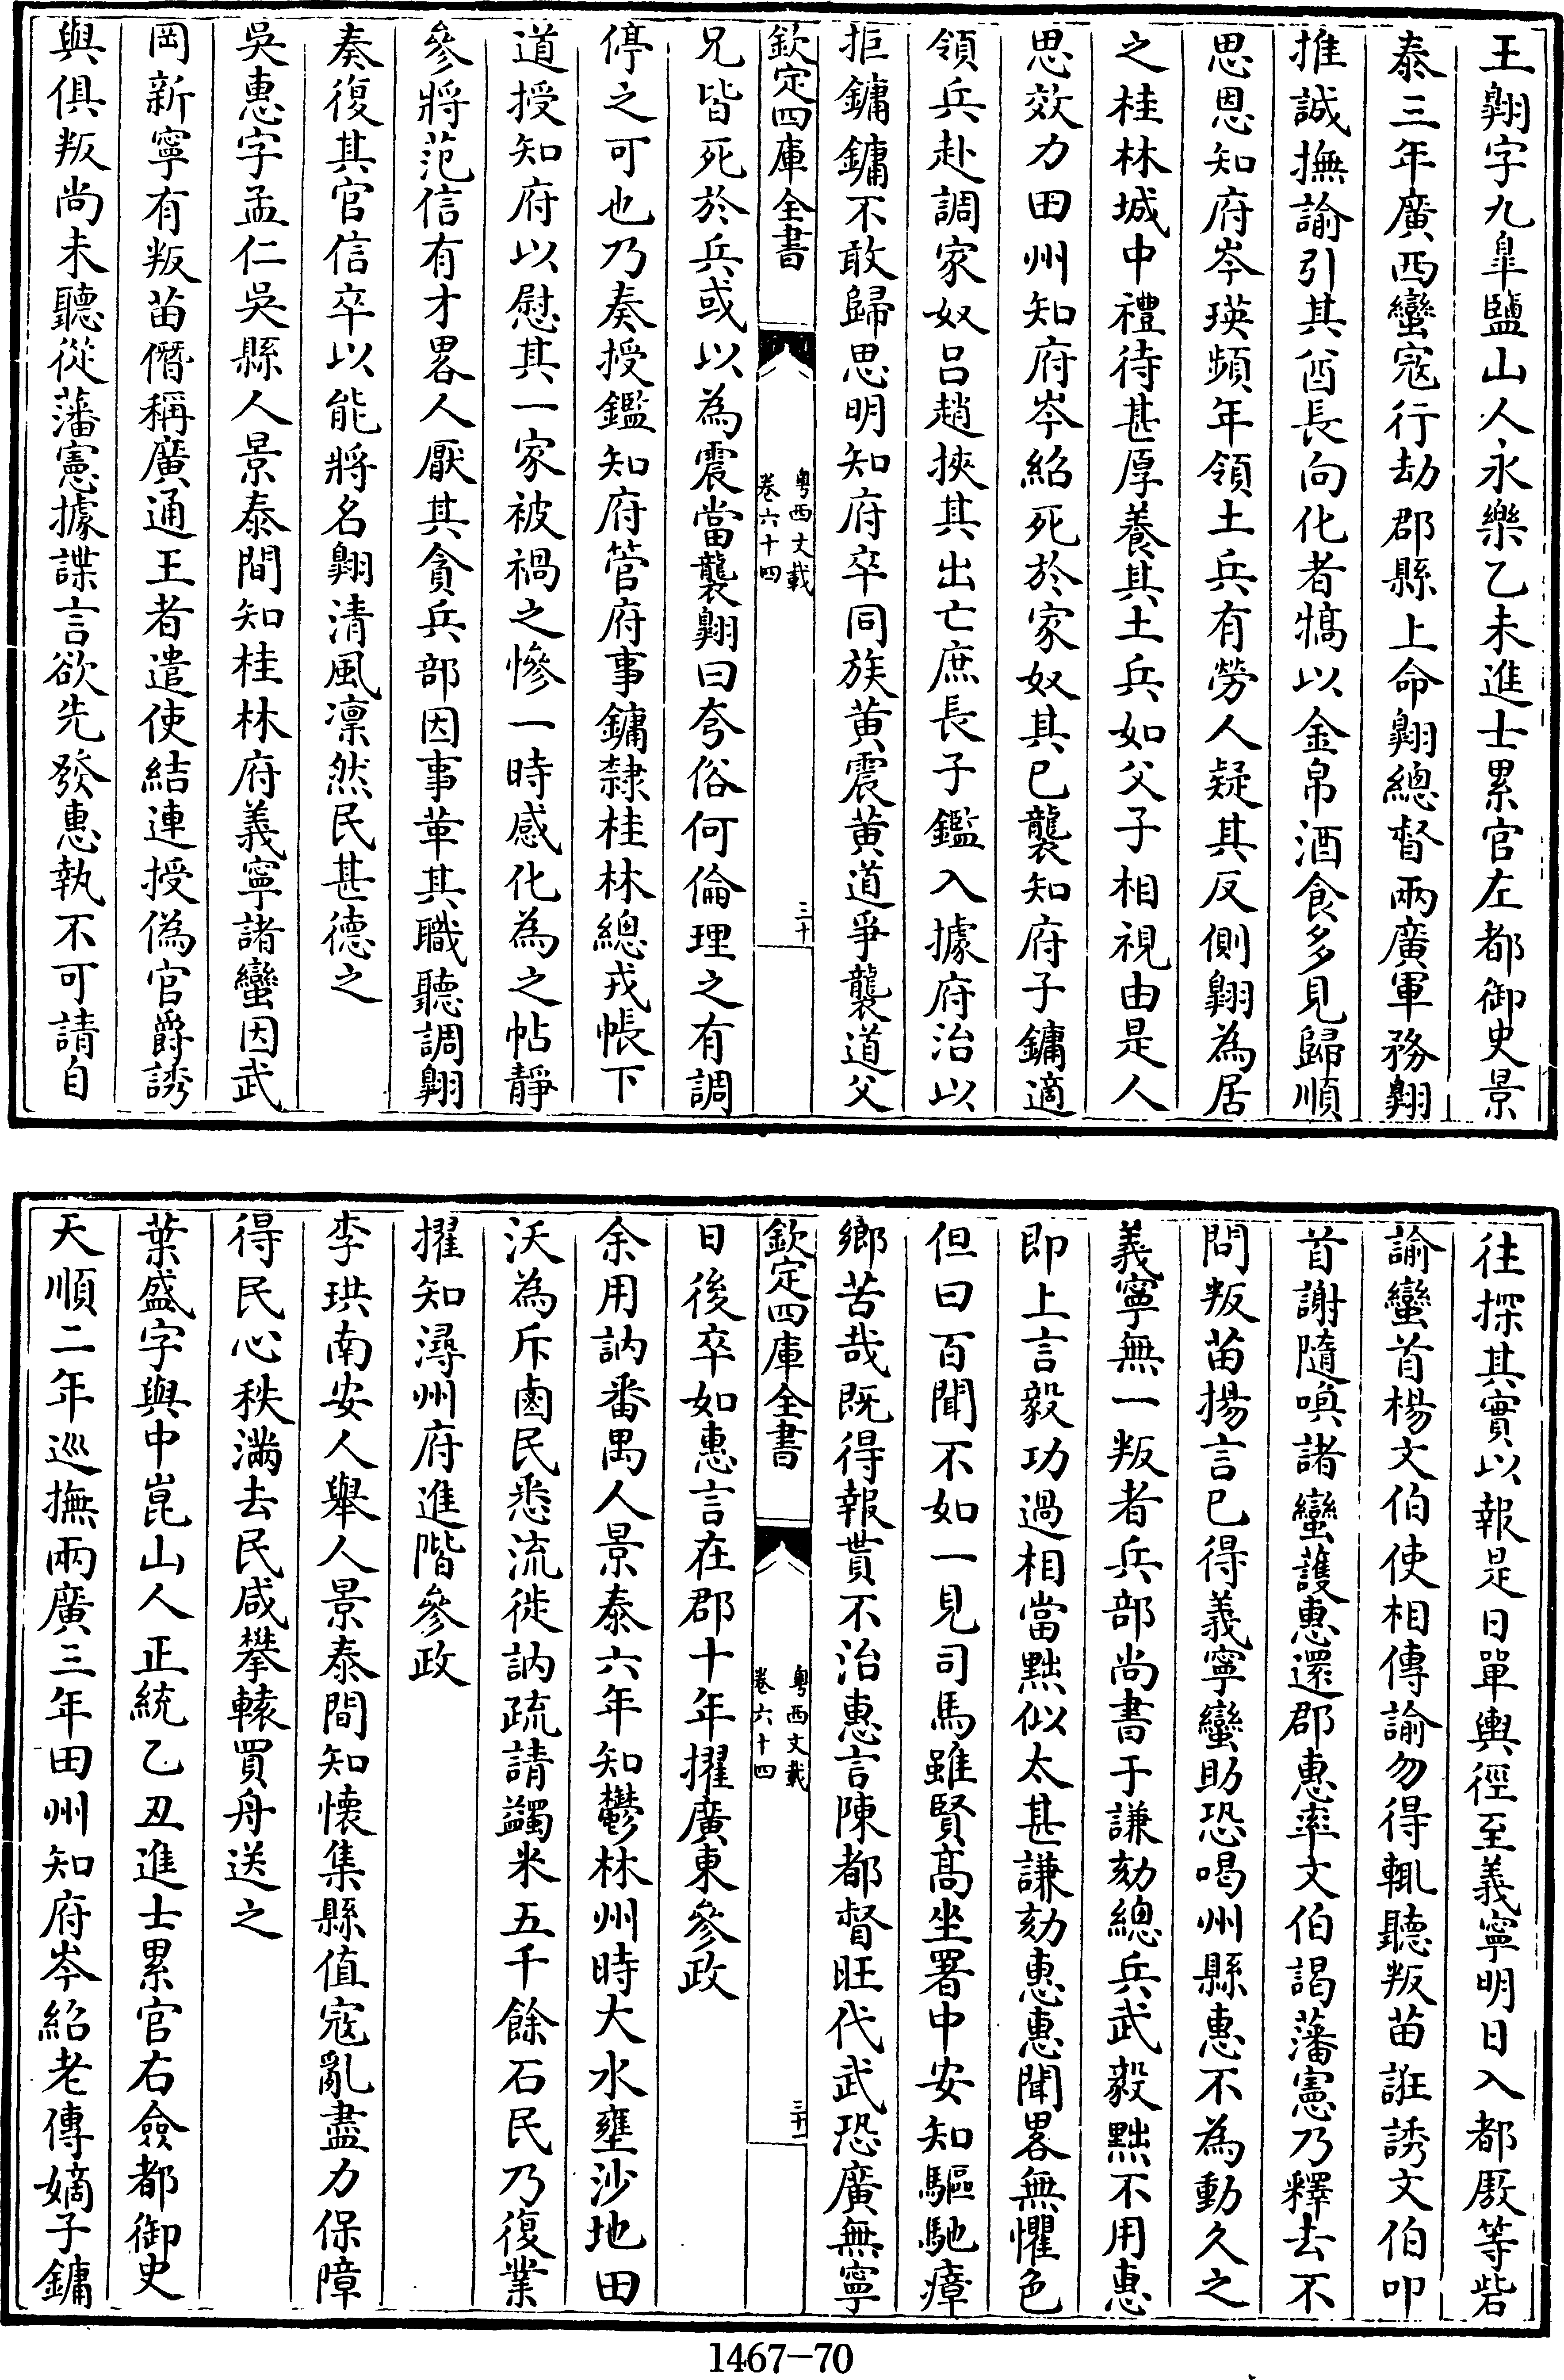 王翺字九臯鹽山人永樂乙未進士累官左都御史景
泰三年廣西蠻寇行劫郡縣上命翺總督兩廣軍務翺
推誠撫諭引其酋長向化者犒以金帛酒食多見歸順
思恩知府岑瑛頻年領土兵有勞人疑其反側翺為居
之桂林城中禮待甚厚養其土兵如父子相視由是人
思效力田州知府岑紹死於家奴其已襲知府子鏞適
領兵赴調家奴呂趙挾其出亡庶長子鑑入據府治以
拒鏞鏞不敢歸思明知府卒同族黄震黄道爭襲道父
欽定四庫全書
粤西文載
卷六十四
三十
兄皆死於兵或以為震當襲翺曰夸俗何倫理之有調
停之可也乃奏授鑑知府管府事鏞隸桂林總戎帳下
道授知府以慰其一家被禍之慘一時感化為之帖靜
參將范信有才畧人厭其貪兵部因事革其職聽調翺
奏復其官信卒以能將名翺清風凜然民甚德之
吳惠字孟仁吳縣人景泰間知桂林府義寧諸蠻因武
岡新寧有叛苗僭稱廣通王者遣使結連授偽官爵誘
與俱叛尚未聽從藩憲據諜言欲先發惠執不可請自
往探其實以報是日單輿徑至義寧明日入都厫等砦
諭蠻首楊文伯使相傳諭勿得輒聽叛苗誑誘文伯叩
首謝隨喚諸蠻護惠還郡惠率文伯謁藩憲乃釋去不
問叛苗揚言已得義寧蠻助恐喝州縣惠不為動久之
義寧無一叛者兵部尚書于謙劾總兵武毅黜不用惠
即上言毅功過相當黜似太甚謙劾惠惠聞畧無懼色
但曰百聞不如一見司馬雖賢高坐署中安知驅馳瘴
鄉苦哉既得報貰不治惠言陳都督旺代武恐廣無寧
欽定四庫全書
粤西文載
卷六十四
三十一
日後卒如惠言在郡十年擢廣東參政
余用訥番禺人景泰六年知鬱林州時大水壅沙地田
沃為斥鹵民悉流徙訥疏請蠲米五千餘石民乃復業
擢知潯州府進階參政
李珙南安人舉人景泰間知懷集縣值寇亂盡力保障
得民心秩滿去民咸攀轅買舟送之
葉盛字與中崑山人正統乙丑進士累官右僉都御史
天順二年巡撫兩廣三年田州知府岑紹老傳嫡子鏞
1467-70